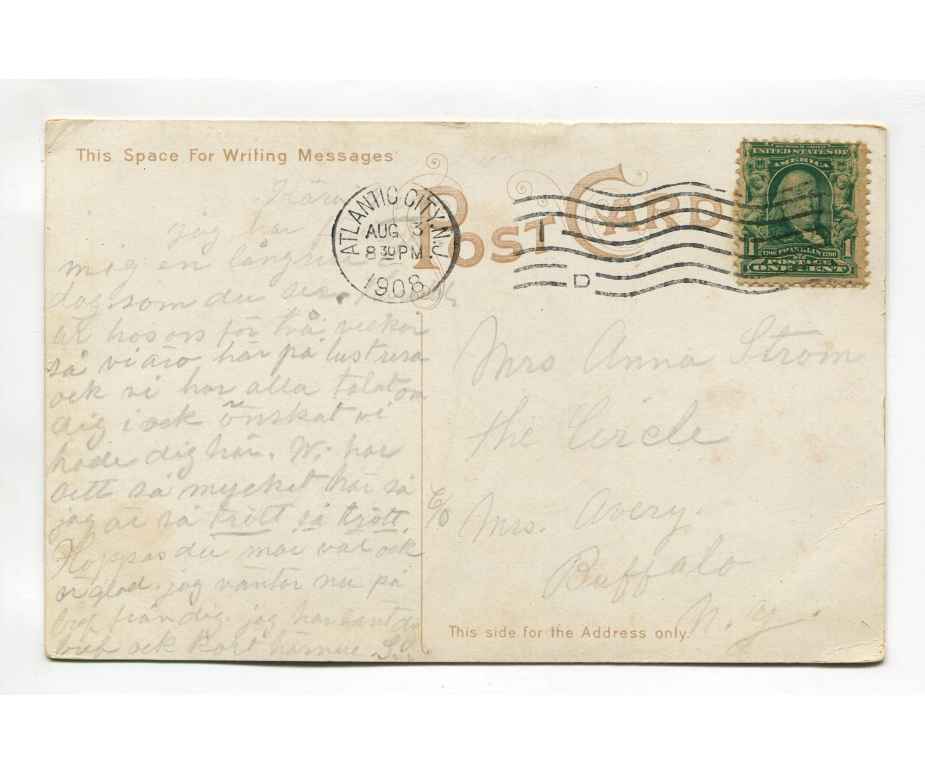 This Space For Writing Messages
POST CARD
ATLANTIC CITY, N.J.
AUG 3
8 30 PM
1908
D
UNITED STATES OF
AMERICA
FRANKLIN
1 1
POSTAGE
ONE CENT
Kära
jag har
mig en lång
dag som du ser.
at hos oss för två veckor
så vi äro här på lustresa
ock vi har alla talat om
dig i ock önskat vi
hade dig här. W. har
sett så mycket här så
jag är så trött så trött
Hoppas du mår väl ock
är glad. jag väntar nu på
bref från dig. jag har sänt
bref ock kort
Mrs Anna Strom
the Circle
c/o Mrs. Avery.
Buffalo
N. Y.
This side for the Address only.